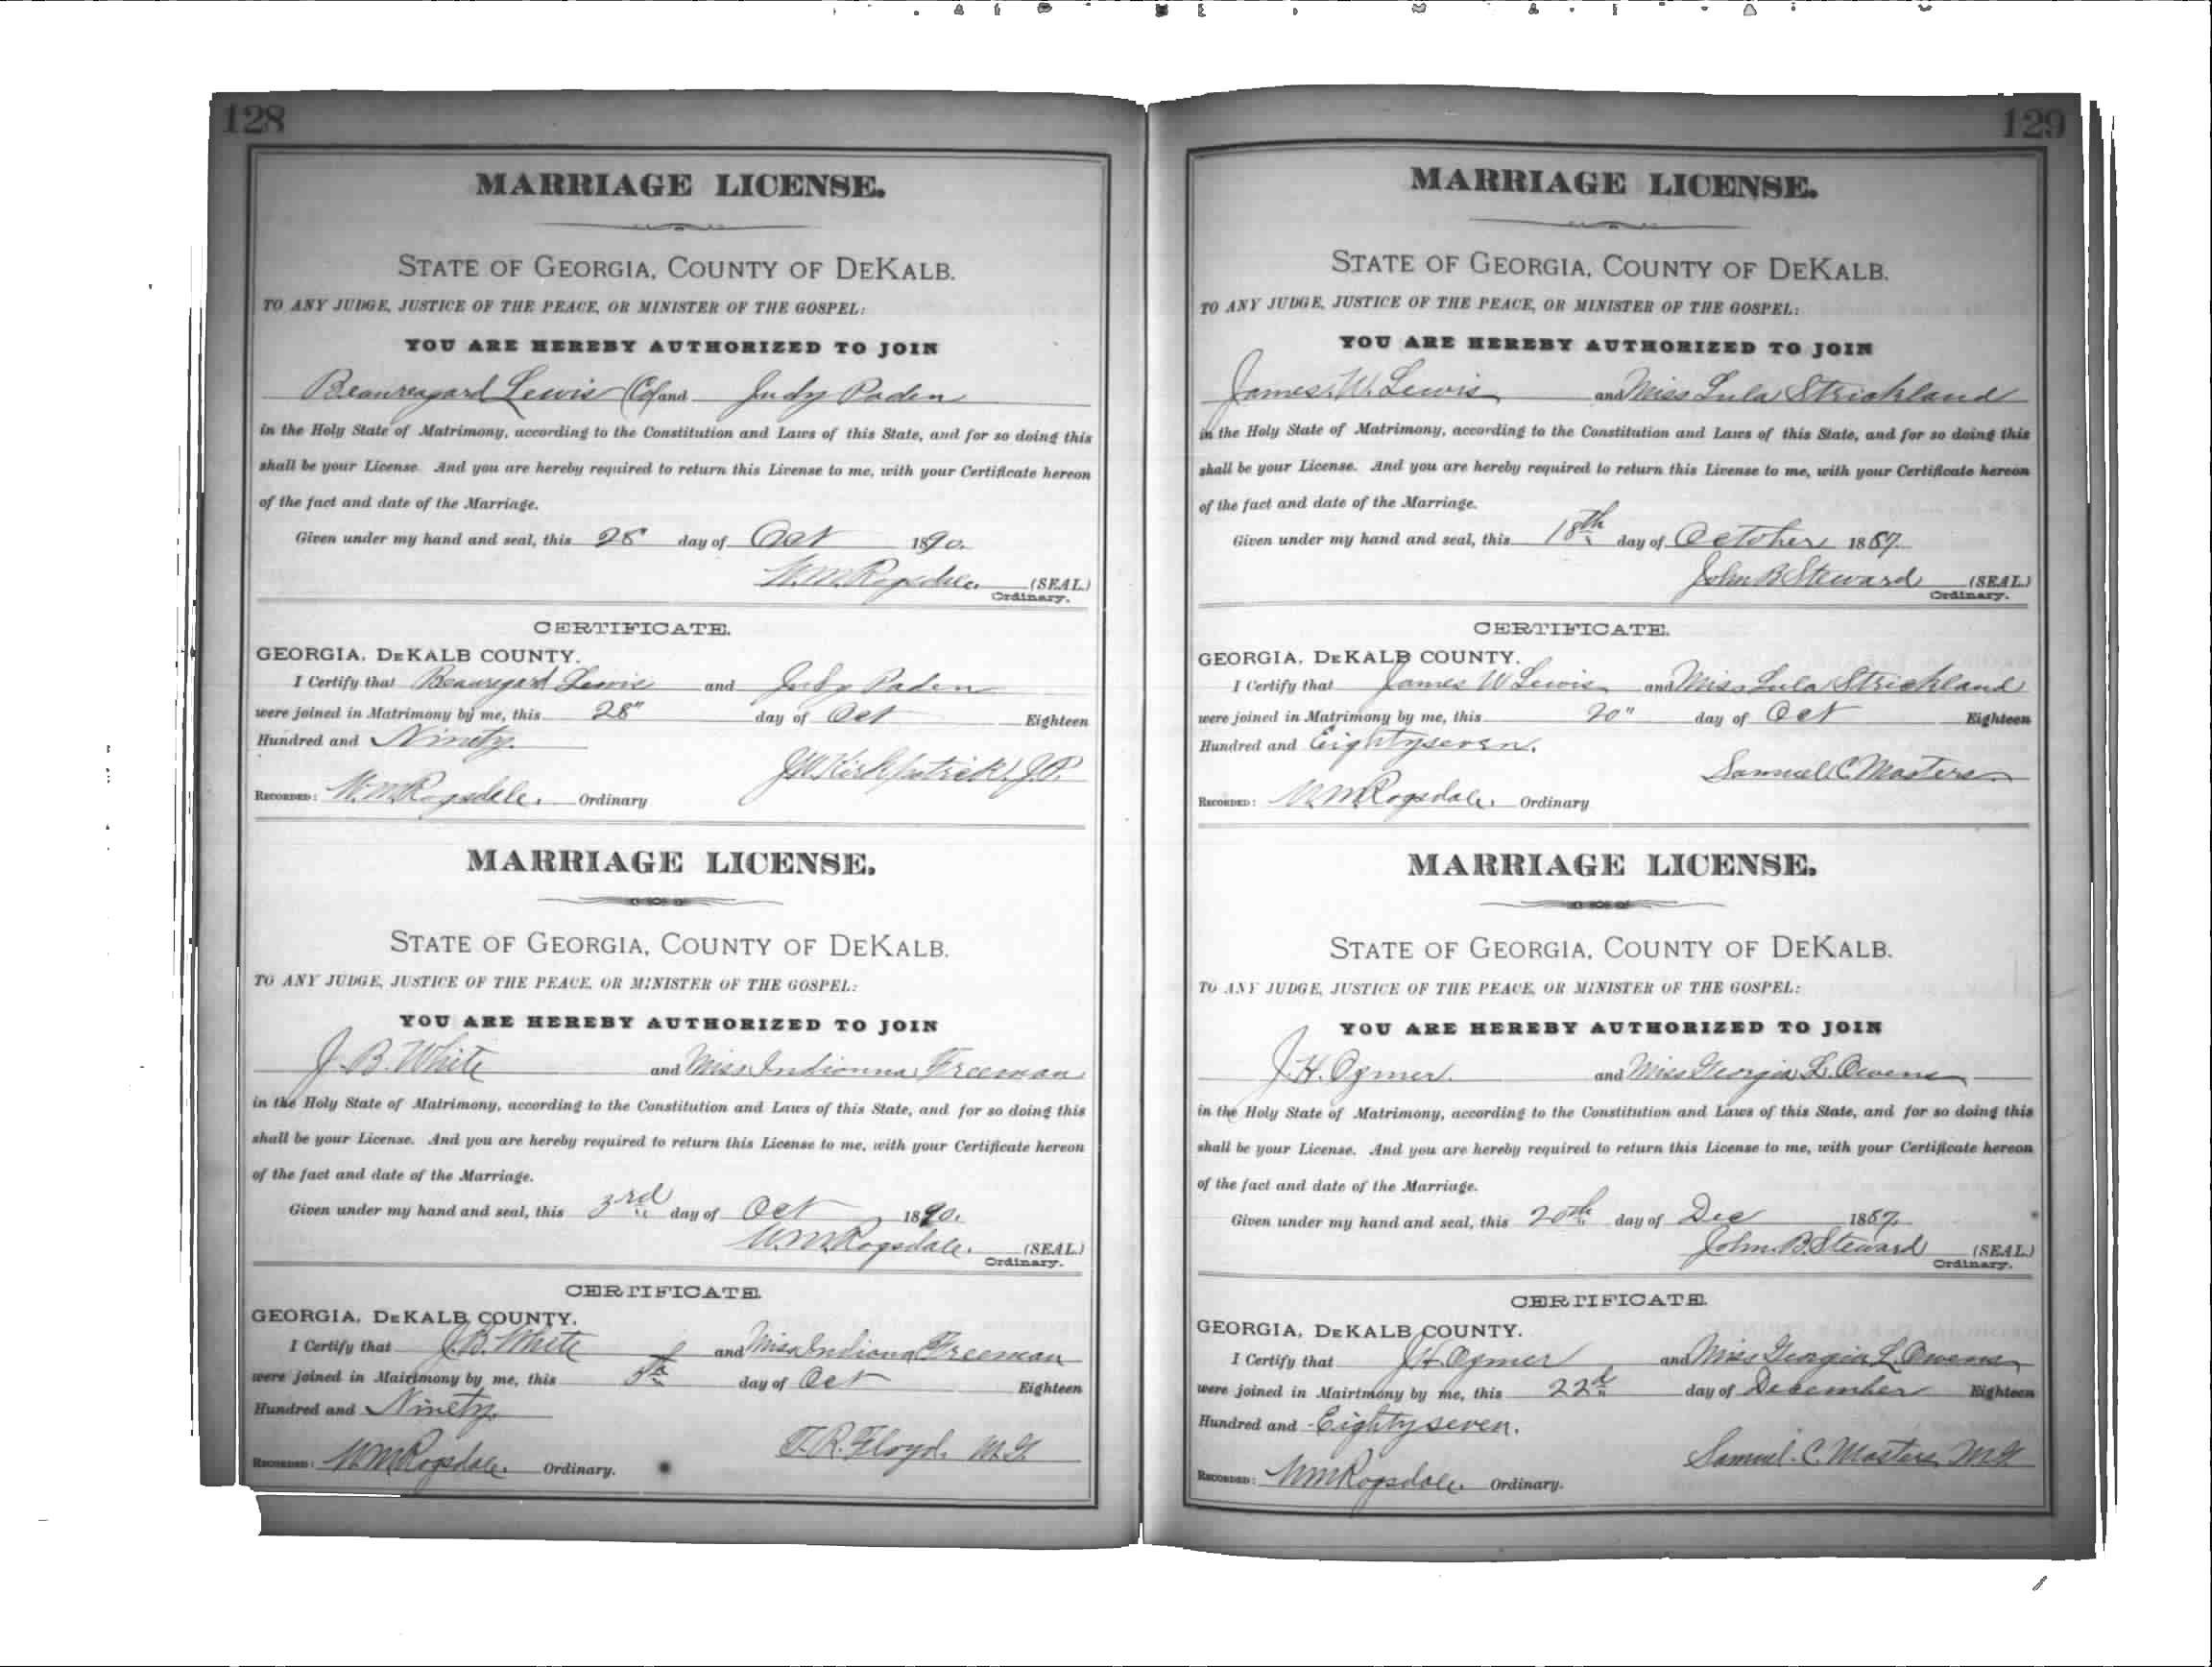 128
MARRIAGE LICENSE.
STATE OF GEORGIA, COUNTY OF DEKALB.
TO ANY JUDGE, JUSTICE OF THE PEACE, OR MINISTER OF THE GOSPEL:
YOU ARE HEREBY AUTHORIZED TO JOIN
Beauregard Lewis (Col) and Judy Paden
in the Holy State of Matrimony, according to the Constitution and Laws of this State, and for so doing this
shall be your License. And you are hereby required to return this License to me, with your Certificate hereon
of the fact and date of the Marriage.
Given under my hand and seal, this 28" day of Oct 1890.
W.M. Ragsdale. (SEAL.)
Ordinary.
CERTIFICATE.
GEORGIA, DEKALB COUNTY.
I Certify that Beauregard Lewis and Judy Paden
were joined in Matrimony by me, this 28" day of Oct Eighteen
Hundred and Ninety.
J.W. Kirkpatrick J.P.
RECORDED: W.M. Ragsdale. Ordinary
MARRIAGE LICENSE.
STATE OF GEORGIA, COUNTY OF DEKALB.
TO ANY JUDGE, JUSTICE OF THE PEACE, OR MINISTER OF THE GOSPEL:
YOU ARE HEREBY AUTHORIZED TO JOIN
J. B. White and Miss Indianna Freeman
in the Holy State of Matrimony, according to the Constitution and Laws of this State, and for so doing this
shall be your License. And you are hereby required to return this License to me, with your Certificate hereon
of the fact and date of the Marriage.
Given under my hand and seal, this 3rd day of Oct 1890.
W.M. Ragsdale. (SEAL.)
Ordinary.
CERTIFICATE
GEORGIA, DEKALB COUNTY.
I Certify that J.B. White and Miss Indiana Freeman
were joined in Mairimony by me, this 5th day of Oct Eighteen
Hundred and Ninety.
T.R. Floyd. M.G.
RECORDED: W.M. Ragsdale. Ordinary.
129
MARRIAGE LICENSE.
STATE OF GEORGIA, COUNTY OF DEKALB.
TO ANY JUDGE, JUSTICE OF THE PEACE, OR MINISTER OF THE GOSPEL:
YOU ARE HEREBY AUTHORIZED TO JOIN
James. W. Lewis and Miss Lula Strickland
in the Holy State of Matrimony, according to the Constitution and Laws of this State, and for so doing this
shall be your License. And you are hereby required to return this License to me, with your Certificate hereon
of the fact and date of the Marriage.
Given under my hand and seal, this 18th day of October 1887.
John B Steward (SEAL.)
Ordinary.
CERTIFICATE.
GEORGIA, DEKALB COUNTY.
I Certify that James W Lewis and Miss Lula Strickland
were joined in Matrimony by me, this 20" day of Oct Eighteen
Hundred and Eightyseven.
Samuel C. Masters
RECORDED: W.M. Ragsdale. Ordinary
MARRIAGE LICENSE.
STATE OF GEORGIA, COUNTY OF DEKALB.
TO ANY JUDGE, JUSTICE OF THE PEACE, OR MINISTER OF THE GOSPEL:
YOU ARE HEREBY AUTHORIZED TO JOIN
J. H. Ozmer. and Miss Georgia L. Owens
in the Holy State of Matrimony, according to the Constitution and Laws of this State, and for so doing this
shall be your License. And you are hereby required to return this License to me, with your Certificate hereon
of the fact and date of the Marriage.
Given under my hand and seal, this 20th day of Dec 1887.
John. B. Steward (SEAL.)
Ordinary.
CERTIFICATE.
GEORGIA, DEKALB COUNTY.
I Certify that J H. Ozmer and Miss Georgia L. Owens
were joined in Mairtmony by me, this 22d day of December Eighteen
Hundred and Eighty seven.
Samuel. C. Masters M.G.
RECORDED: W.M. Ragsdale. Ordinary.